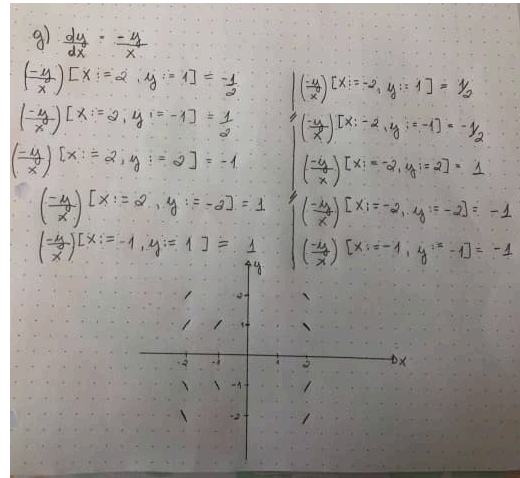 g) dy/dx = -y/x
(-y/x) [x:=2, y:=1] = -1/2
(-y/x) [x:=2, y:=-1] = 1/2
(-y/x) [x:=2, y:=2] = -1
(-y/x) [x:=2, y:=-2] = 1
(-y/x) [x:=-1, y:=1] = 1
(-y/x) [x:=-2, y:=1] = 1/2
(-y/x) [x:=-2, y:=-1] = -1/2
(-y/x) [x:=-2, y:=2] = 1
(-y/x) [x:=-2, y:=-2] = -1
(-y/x) [x:=-1, y:=-1] = -1
y
2
1
-2 -1 1 2 x
-1
-2